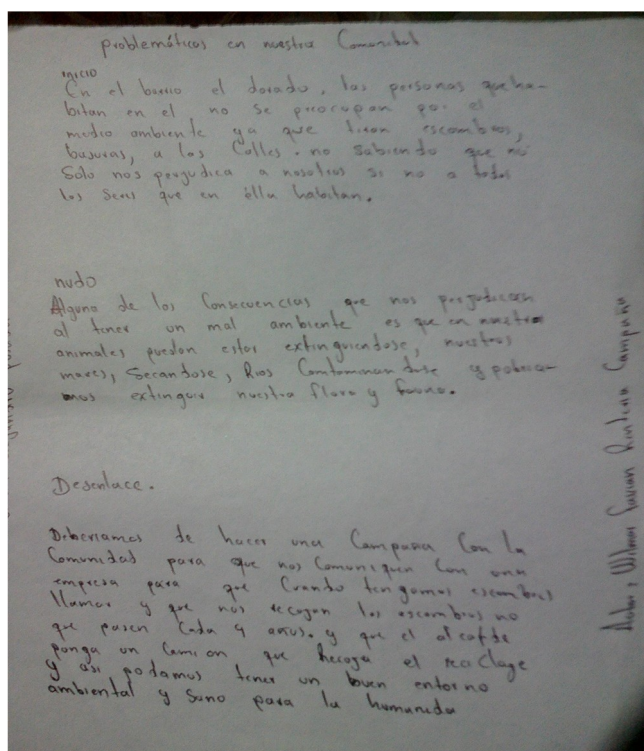 problemáticas en nuestra Comunidad
inicio
En el barrio el dorado, las personas que ha-
bitan en el no se preocupan por el
medio ambiente ya que tiran escombros,
basuras, a las Calles. no sabiendo que no
Solo nos perjudica a nosotros si no a todos
los Seres que en élla habitan.
nudo
Alguna de las Consecuencias que nos perjudican
al tener un mal ambiente es que en nuestros
animales pueden estar extinguiendose, nuestros
mares, Secandose, Rios Contaminandose y podria-
mos extinguir nuestra flora y fauna.
Desenlace.
Deberiamos de hacer una Campaña Con la
Comunidad para que nos Comuniquen Con una
empresa para que Cuando tengamos escombros
llamar y que nos recojan los escombros no
que pasen Cada 4 años. y que el alcalde
ponga un Camion que Recoja el reciclage
y asi podamos tener un buen entorno
ambiental y Sano para la humanida
Autor Wilmar Campaña